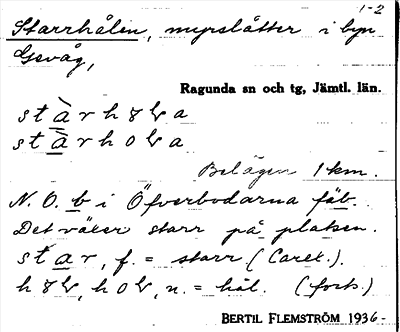 1-2
Starrhålen, myrslåtter i byn
Gevåg,
Ragunda sn och tg, Jämtl. län.
Belägen 1 km.
N. O. b i Öfverbodarna fäb.
Det växer starr på platsen.
star, f. = starr (Carex.).
n. = hål. (forts.)
BERTIL FLEMSTRÖM 1936-